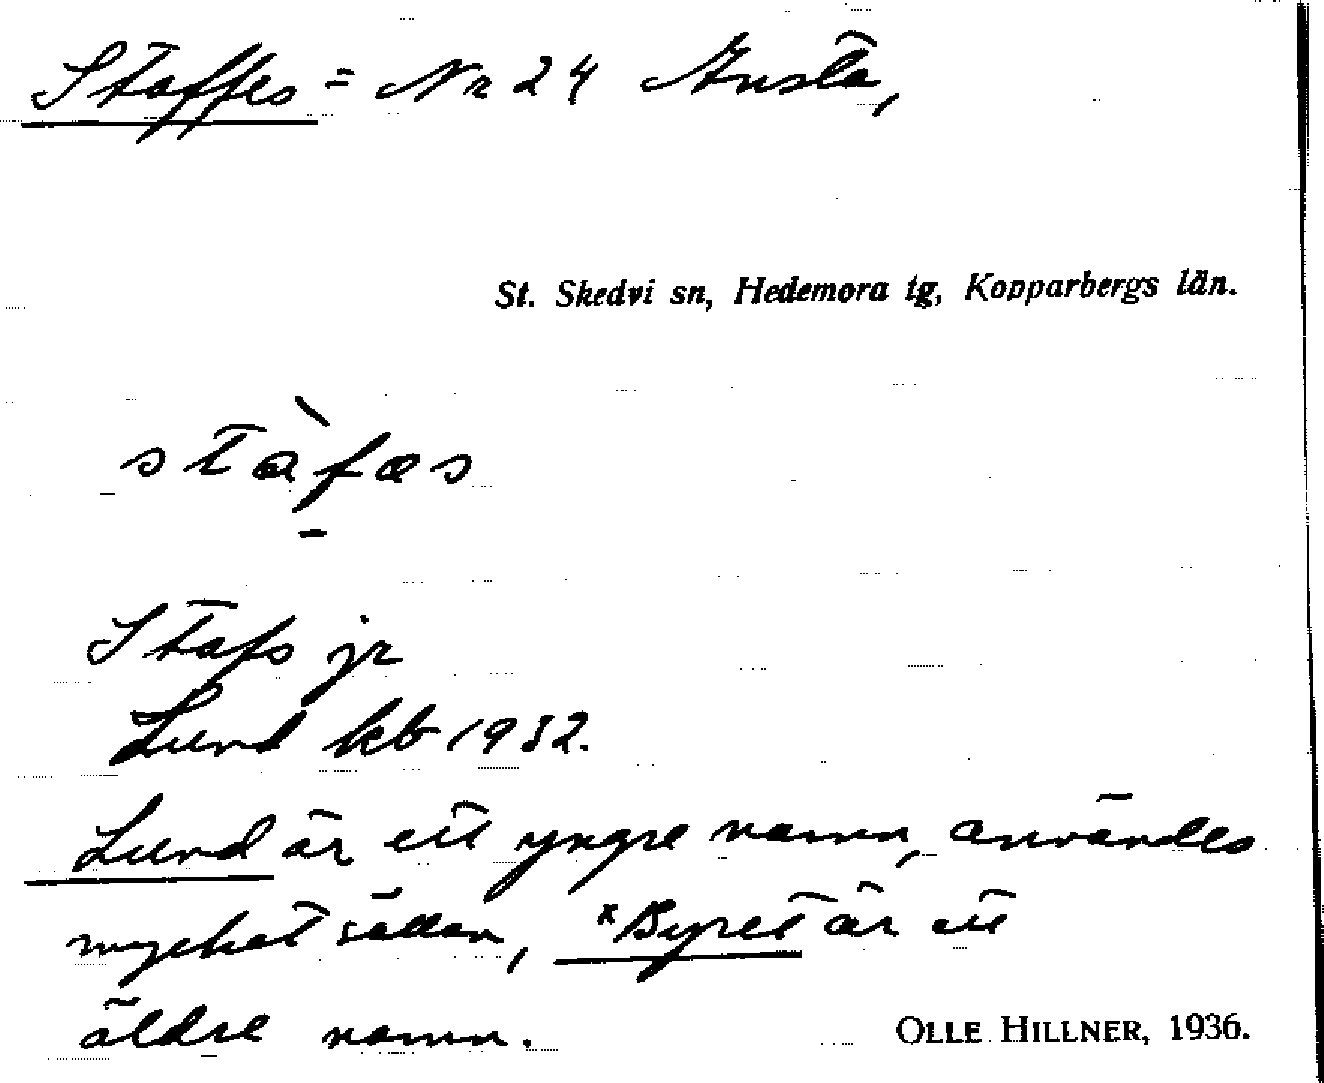 Staffes = Nr 24 Ansta,
St. Skedvi sn, Hedemora tg, Kopparbergs län.
stàfas
Stafs jr
Lund kb 1932.
Lund är ett yngre namn, användes
mycket sällan, *Byret är ett
äldre namn.
OLLE HILLNER, 1936.